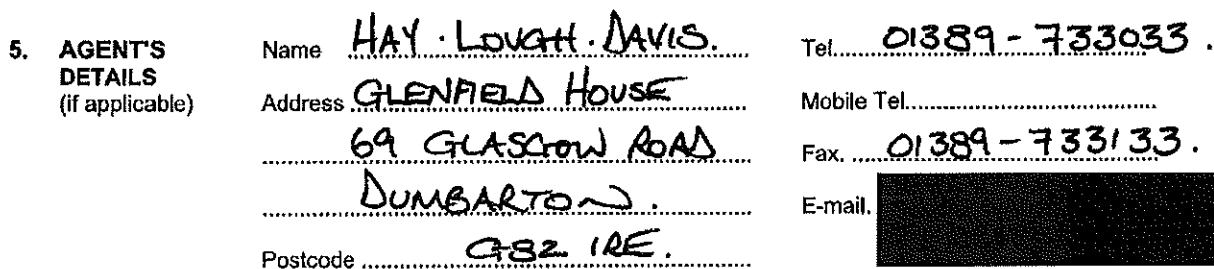 5. AGENT'S DETAILS (if applicable)
Name HAY · LOUGH · DAVIS.
Address GLENFIELD HOUSE
69 GLASGOW ROAD
DUMBARTON.
Postcode G82 1RE.
Tel. 01389 - 733033.
Mobile Tel.
Fax. 01389 - 733133.
E-mail.